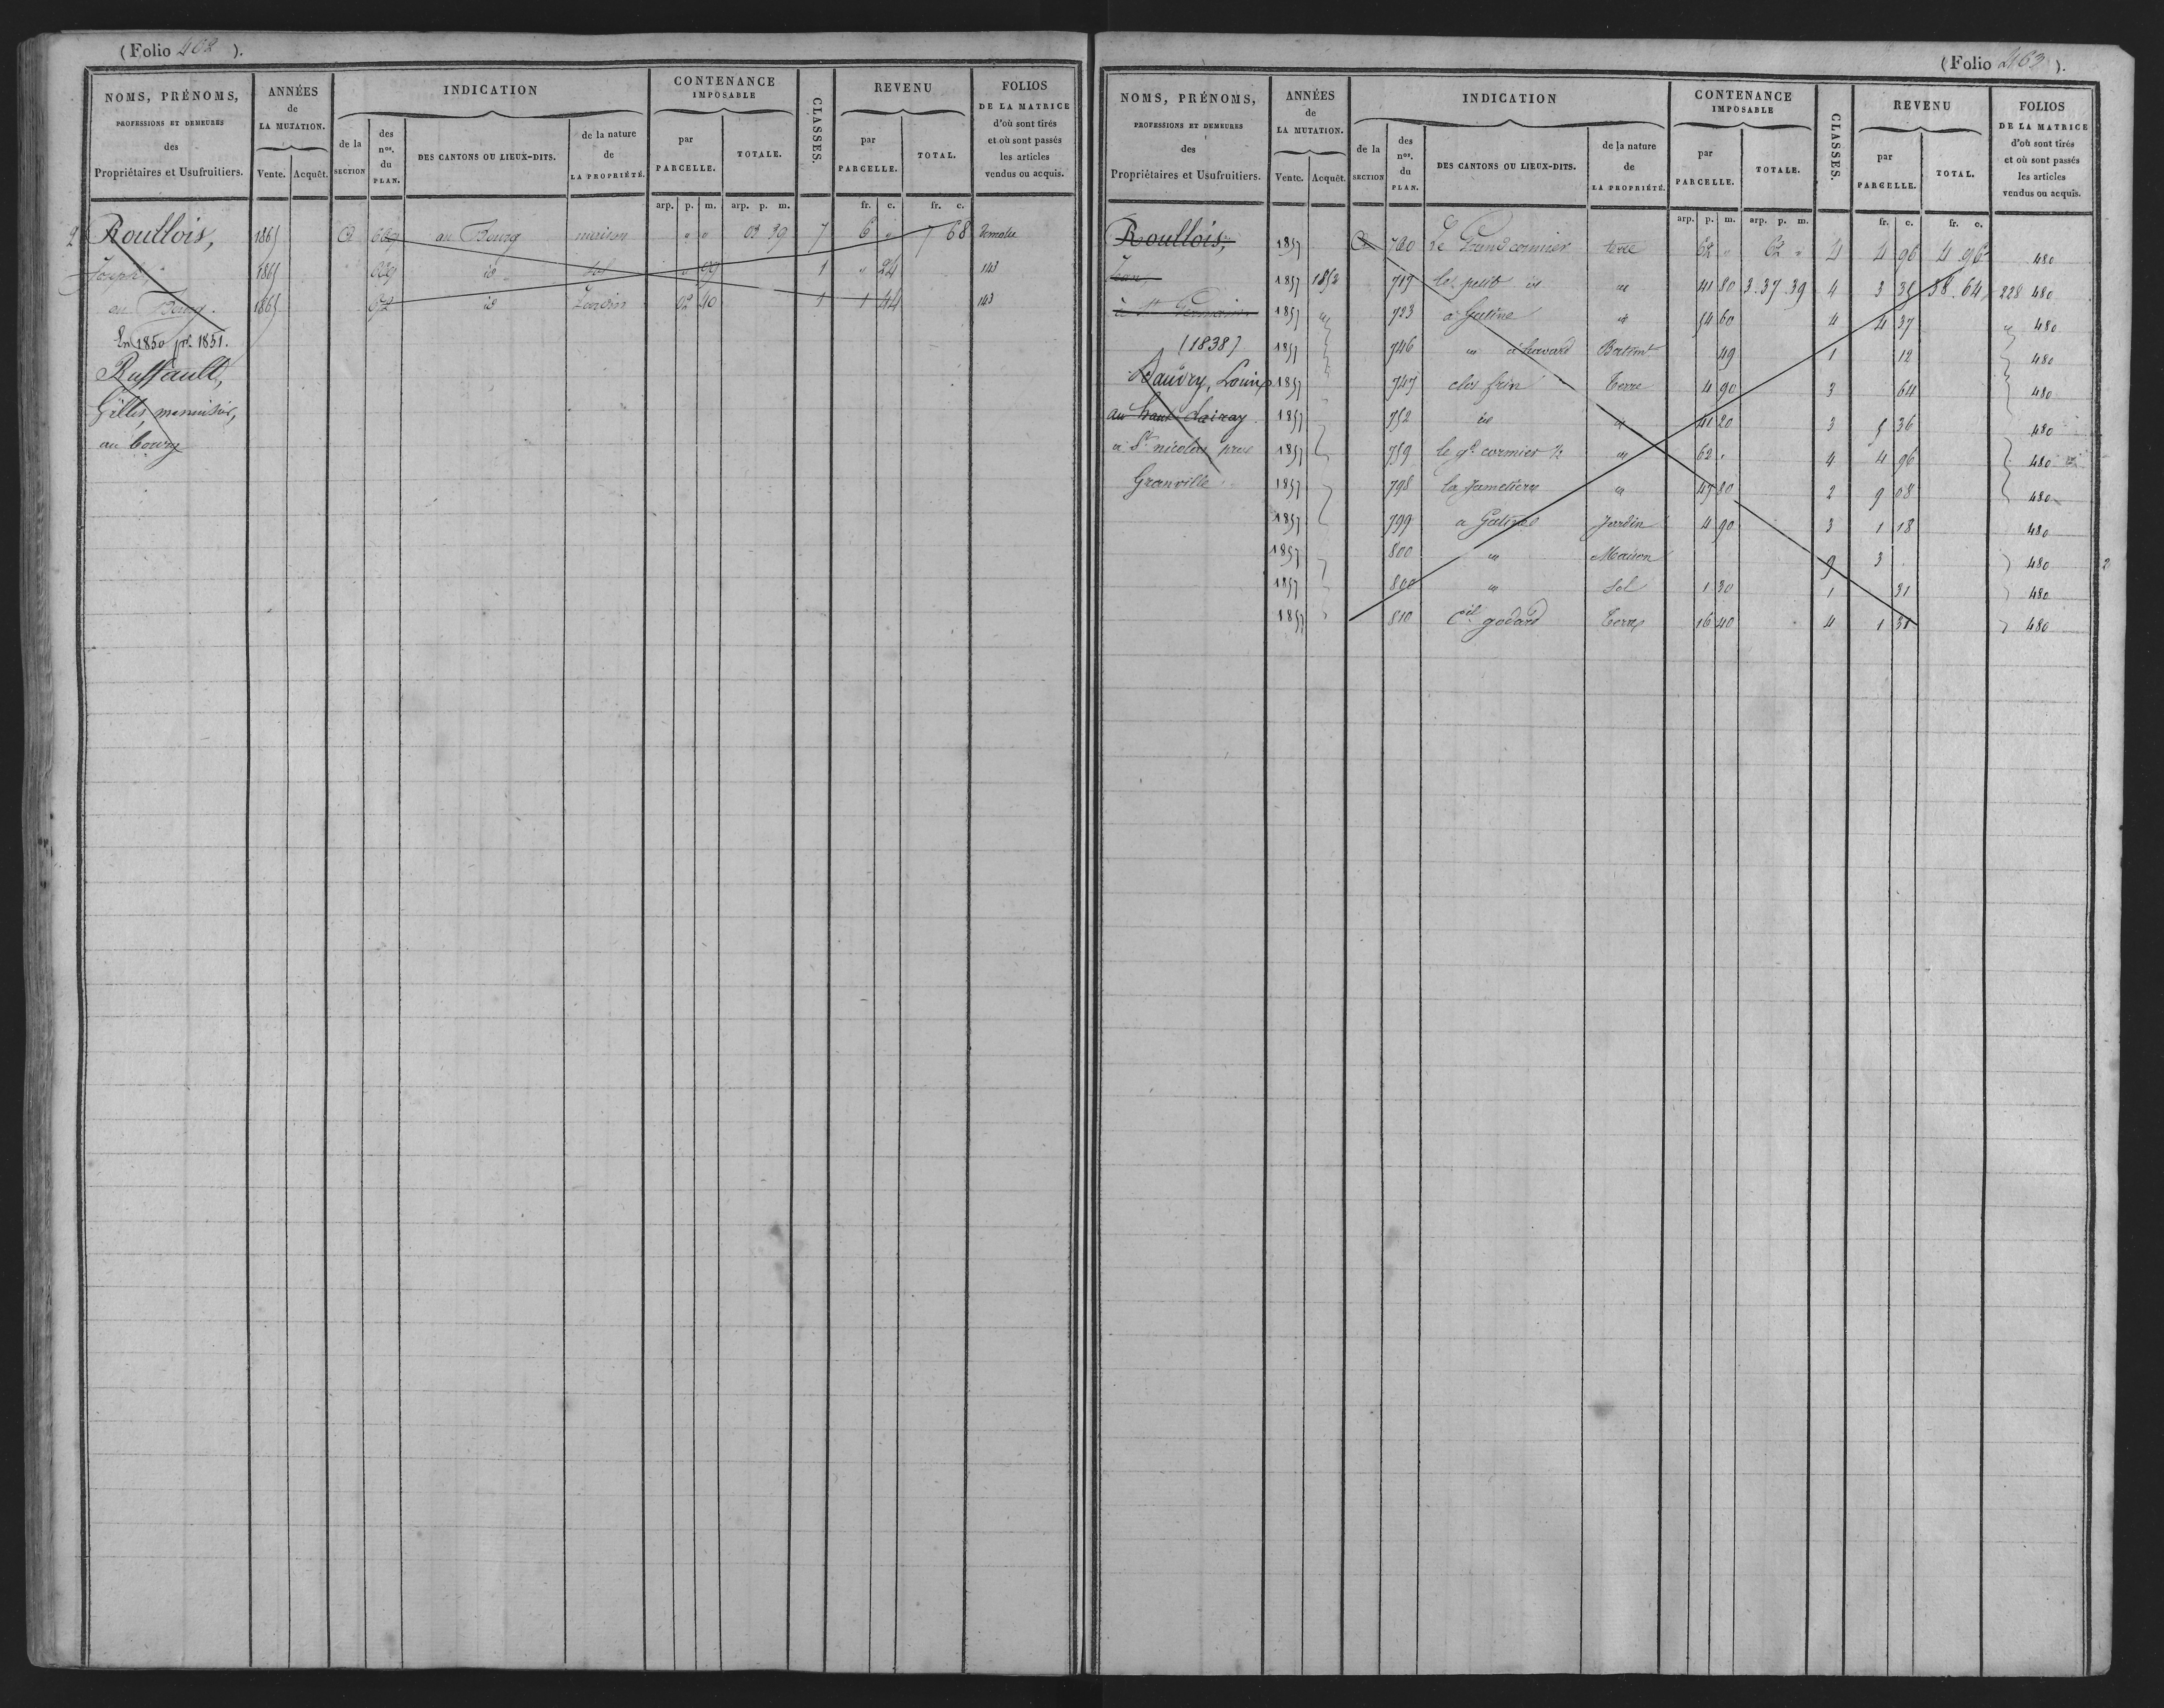 (Folio 402 ).
NOMS, PRÉNOMS,
PROFESSIONS ET DEMEURES
des
Propriétaires et Usufruitiers.
ANNÉES
de
LA MUTATION.
Vente. Acquêt.
INDICATION
de la
SECTION
des
nos.
du
PLAN.
DES CANTONS OU LIEUX-DITS.
de la nature
de
LA PROPRIÉTÉ.
CONTENANCE
IMPOSABLE
par
PARCELLE.
TOTALE.
CLASSES.
REVENU
par
PARCELLE.
TOTAL.
FOLIOS
DE LA MATRICE
d'où sont tirés
et où sont passés
les articles
vendus ou acquis.
arp. p. m. arp. p. m. fr. c. fr. c.
Roullois, 1865 au Bourg maison " " 03 39 7 6 " 7 68
Joseph, 1865 id sol " 99 1 " 24 143
au Bourg. 1865 672 id Jardin 02 40 1 1 44 143
En 1850 pr. 1851.
Ruffault,
Gilles, menuisier,
au bourg
(Folio 403 ).
NOMS, PRÉNOMS,
PROFESSIONS ET DEMEURES
des
Propriétaires et Usufruitiers.
ANNÉES
de
LA MUTATION.
Vente. Acquêt.
INDICATION
de la
SECTION
des
nos.
du
PLAN.
DES CANTONS OU LIEUX-DITS.
de la nature
de
LA PROPRIÉTÉ.
CONTENANCE
IMPOSABLE
par
PARCELLE.
TOTALE.
CLASSES.
REVENU
par
PARCELLE.
TOTAL.
FOLIOS
DE LA MATRICE
d'où sont tirés
et où sont passés
les articles
vendus ou acquis.
arp. p. m. arp. p. m. fr. c. fr. c.
Roullois, 1857 760 Le Grand cormier terre 62 " 62 " 4 4 96 4 96 480
Jean, 1857 1852 717 le petit id id 41 80 3.37.39 4 3 35 38.64 228 480
à St Germain 1857 723 a Gatine id 54 60 4 4 37 480
(1838) 1857 746 " Batimt 49 1 12 480
Vaudry, Louis 1857 747 clos frin Terre 4 90 3 64 480
au haut 1857 752 id id 41 20 3 5 36 480
a St nicolas pres 1857 759 le gd cormier id 62 " 4 4 96 480
Granville 1857 798 la Jametiere id 47 80 2 9 08 480
1857 799 a Gatine Jardin 4 90 3 1 18 480
1857 800 " Maison 9 3 . 480 2
1857 800 " Sol 1 30 1 31 480
1857 810 godard Terre 16 40 4 1 31 480